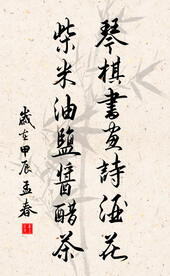 琴棋書畫詩酒花
柴米油鹽醬醋茶
歲在甲辰孟春